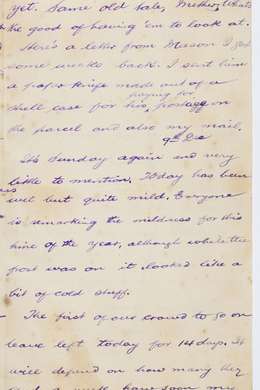 yet. Same old tale, Mother, what's
the good of having 'em to look at.
Here's a letter from Mason I got
some weeks back. I sent him
a paper knife made out of a
shell case for his paying for postage on
the parcel and also my mail.
9th Dec
Its Sunday again and very
little to mention. Today has been
wet but quite mild. Everyone
is remarking the mildness for this
time of the year, although while the
frost was on it looked like a
bit of cold stuff.
The first of our crowd to go on
leave left today for 14 days. It
will depend on how many they